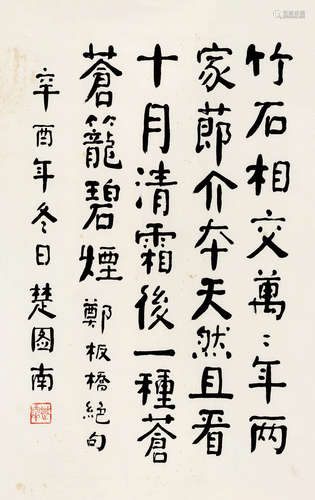 竹石相交萬〻年兩
家節介本天然且看
十月清霜後一種蒼
蒼籠碧煙 鄭板橋絕句
辛酉年冬日楚图南